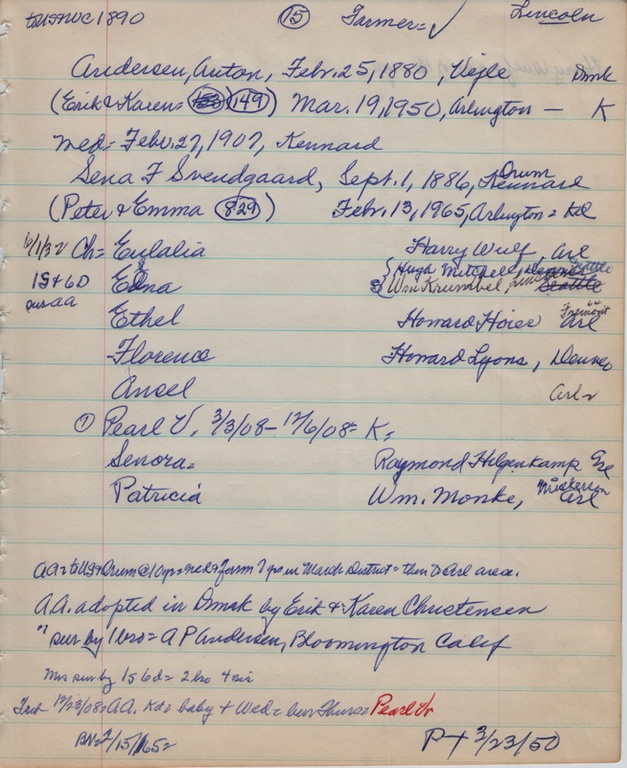 to US+WC 1890 (15) Farmer= ✓ Lincoln
Andersen, Anton, Feb. 25, 1880, Vejle Dmk
(Erik & Karen= (149)) Mar. 19, 1950, Arlington — K
med= Feb. 27, 1907, Kennard
Sena F Svendgaard, Sept. 1, 1886, Kennard Orum
(Peter & Emma (829)) Feb. 13, 1965, Arlington = Kd
Ch= Eulalia Harry Wulf, Arl
1S+6D Edna { Hugh Mitchell, Seattle
sur AA Wm Krumbel, Seattle
Ethel Howard Hoier Arl Fremont
Florence Howard Lyons, Denver
Ansel Arl
(1) Pearl V, 3/3/08 – 12/6/08= K=
Senora= Raymond Hilgenkamp Arl
Patricia Wm. Monke, Arl
AA= to US+Orum @10 yrs= + farm 7 yrs in District= then to Arl area.
A.A. adopted in Dmrk by Erik & Karen Christensen
" sur by 1 bro= A P Andersen, Bloomington Calif
Mrs sur by 1S 6d= 2 bro 4 sis
12/23/08= A.A. baby + Wed= bur Thurs= Pearl V
BN= 2/15/65= P+ 3/23/50